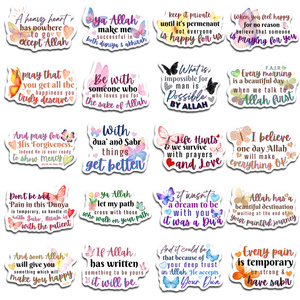 A heavy heart
has nowhere
to go
except Allah
Ya Allah
make me
successful in
both duniya & akhirah
keep it private
until it's permanent
not everyone
is happy for us
When you feel happy
for no reason
believe that someone
is praying for you
I pray that
you get all the
happiness you
truly deserve
Be with
someone who
who loves you for
the sake of Allah
What is
impossible for
man is
Possible
BY ALLAH
FAJR
Every morning
is a beautiful day
when we talk to
Allah first
And pray for
His Forgiveness,
indeed he is ever ready
to show mercy
With
dua' and Sabr
things
get better
Life Hurts
& we survive
with prayers
and Love
I believe
one day Allah
will make
everything OK
Don't be sad
Pain in this Dunya
is temporary, so handle it
with the patient
Ya Allah
let my path
cross with those
who walk on your path
it wasn't
a dream to be
with you
it was a Dua
Allah has a
beautiful destination
waiting at the end of
your painful journey
And soon Allah
will give you
something which will
make you happy
If Allah
has written
something to be yours
it will be.
And it could be
that because of
your deep trust
in Allah, He accepts
Your Dua
Every pain
is temporary
be strong &
have sabr